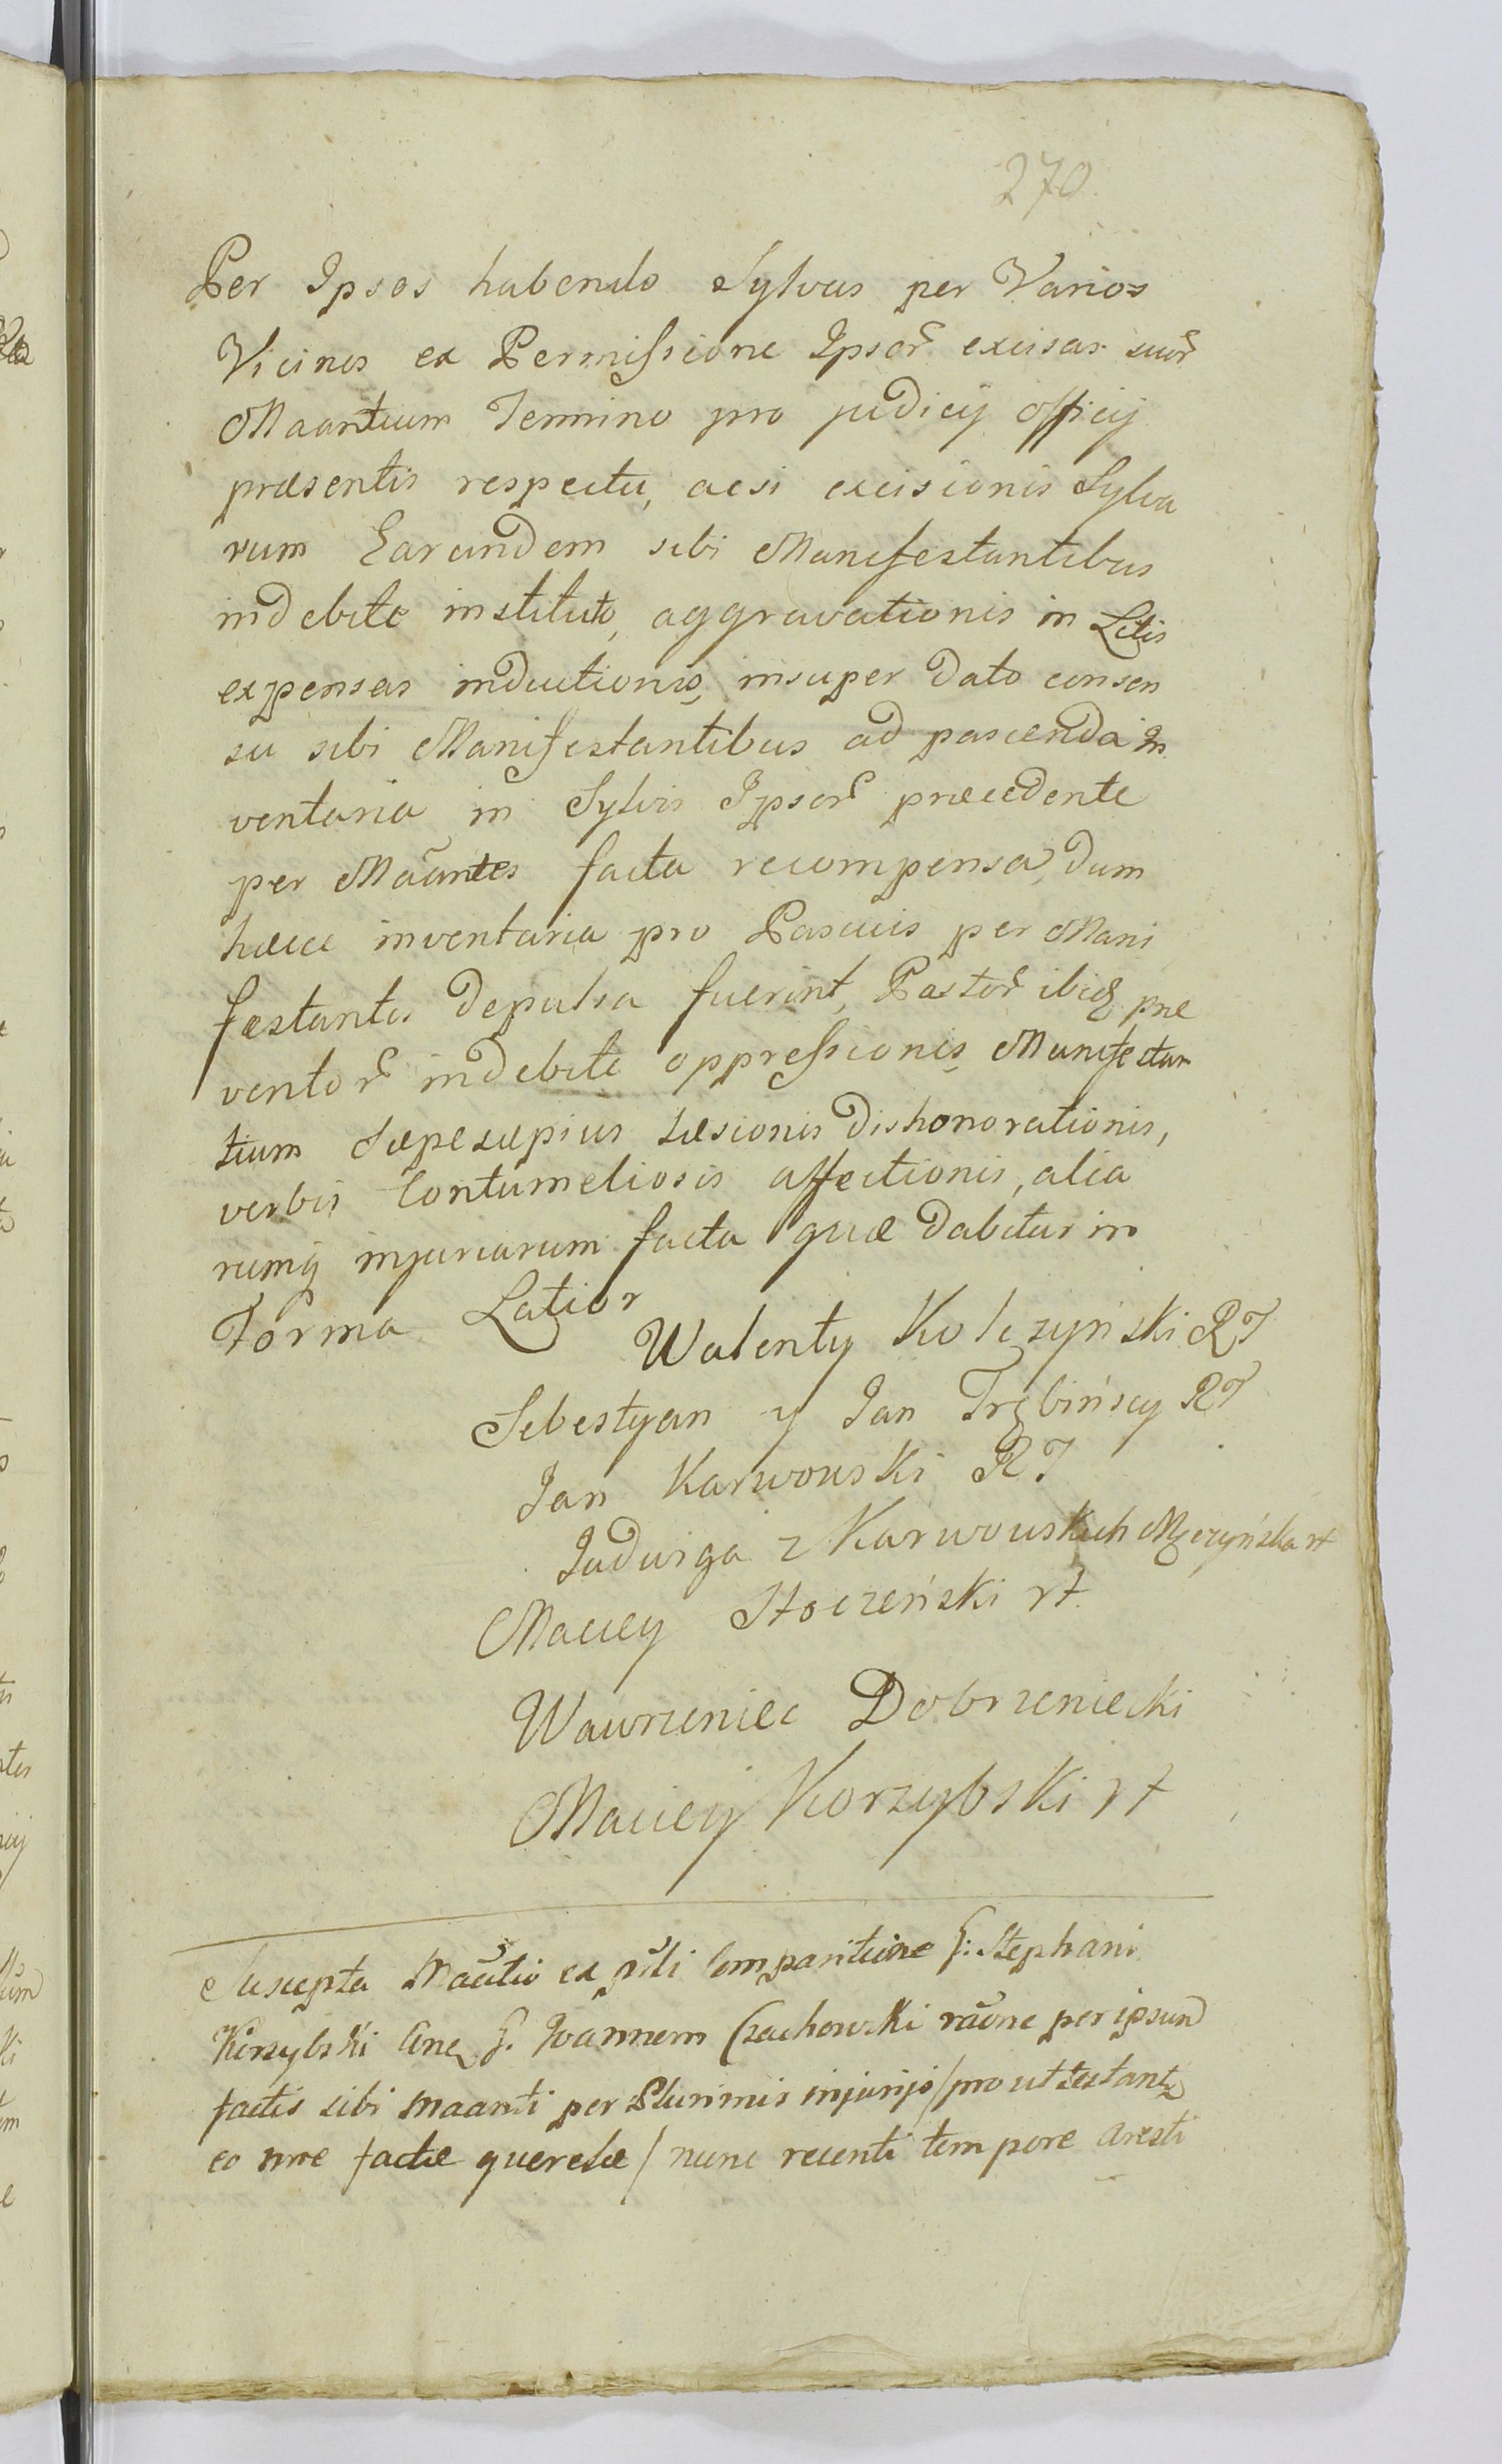 270.
Per Ipsos habendo Sylvas per Varios
Vicinos ex Permissione Ipsor̃ excisas suor̃
Maantium Termino pro judicij officij
præsentis respectu, acsi excisionis Sylva
rum Earundem sibi Manifestantibus
indebite instituto, aggravationis in Litis
expensas inductionis, insuper dato consen
su sibi Manifestantibus ad pascenda In
ventaria in Sylvis Ipsor̃ præcedente
per Maãntes facta recompensa, dum
hæcce inventaria pro Pascuis per Mani
festantes depulsa fuerint, Pastor̃ ibiq præ
ventor̃ indebite oppressionis, Manifestan
tium Sæpesæpius læsionis dishonorationis,
verbis Contumeliosis affectionis, alia
rumq injuriarum facta quæ dabitur in
Forma Latior
Walenty Kolczyński RT
Sebestyan y Jan Trębińscy RT
Jan Karwowski RT
Jadwiga z Karwowskich Męczyńska rt
Maciey Stoczeński rt
Wawrzeniec Dobrzeniecki
Maciey Korzybski rt
Suscepta Maõtio ex pñti Comparitione G: Stephani
Korzybski Cne G. Joannem Czachowski raõne per ipsund
factis sibi Maanti per Plurimis injurijs / pro ut testantr
eo nre factæ querelæ / nunc recenti tempore Aresti